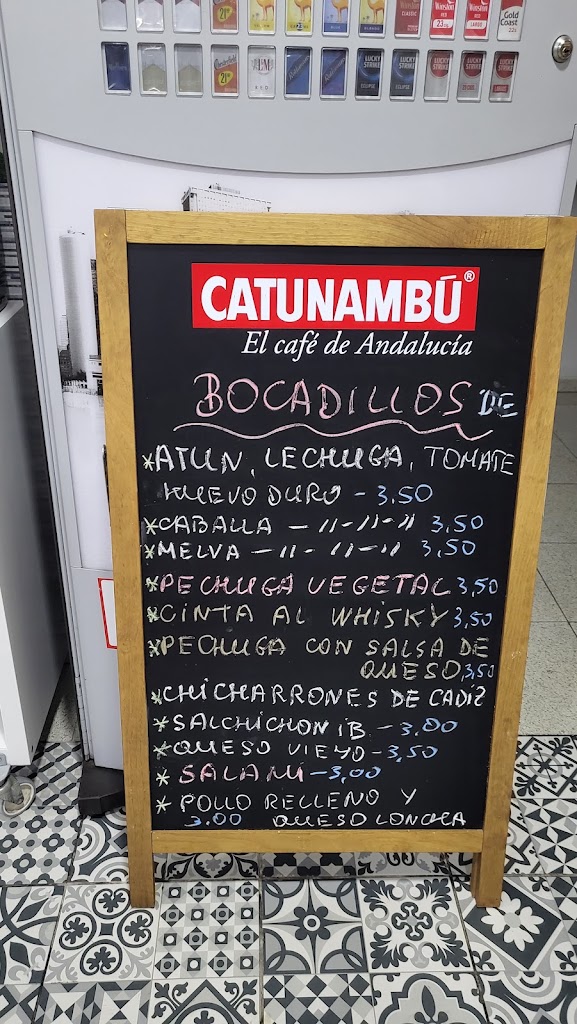 Winston
Winston
Winston
Gold
Coast
LUCKY
STRIKE
LUCKY
STRIKE
LUCKY
STRIKE
LUCKY
STRIKE
LUCKY
STRIKE
CATUNAMBÚ®
El café de Andalucía
BOCADILLOS DE
*ATUN, LECHUGA, TOMATE
HUEVO DURO - 3,50
*CABALLA - 11-11-11 3,50
*MELVA - 11 - 11-11 3,50
*PECHUGA VEGETAL 3,50
*CINTA AL WHISKY 3,50
*PECHUGA CON SALSA DE
QUESO 3,50
*CHICHARRONES DE CADIZ
*SALCHICHON IB. - 3.00
*QUESO VIEJO - 3,50
* SALAMI - 3,00
* POLLO RELLENO Y
3.00 QUESO LONCHA